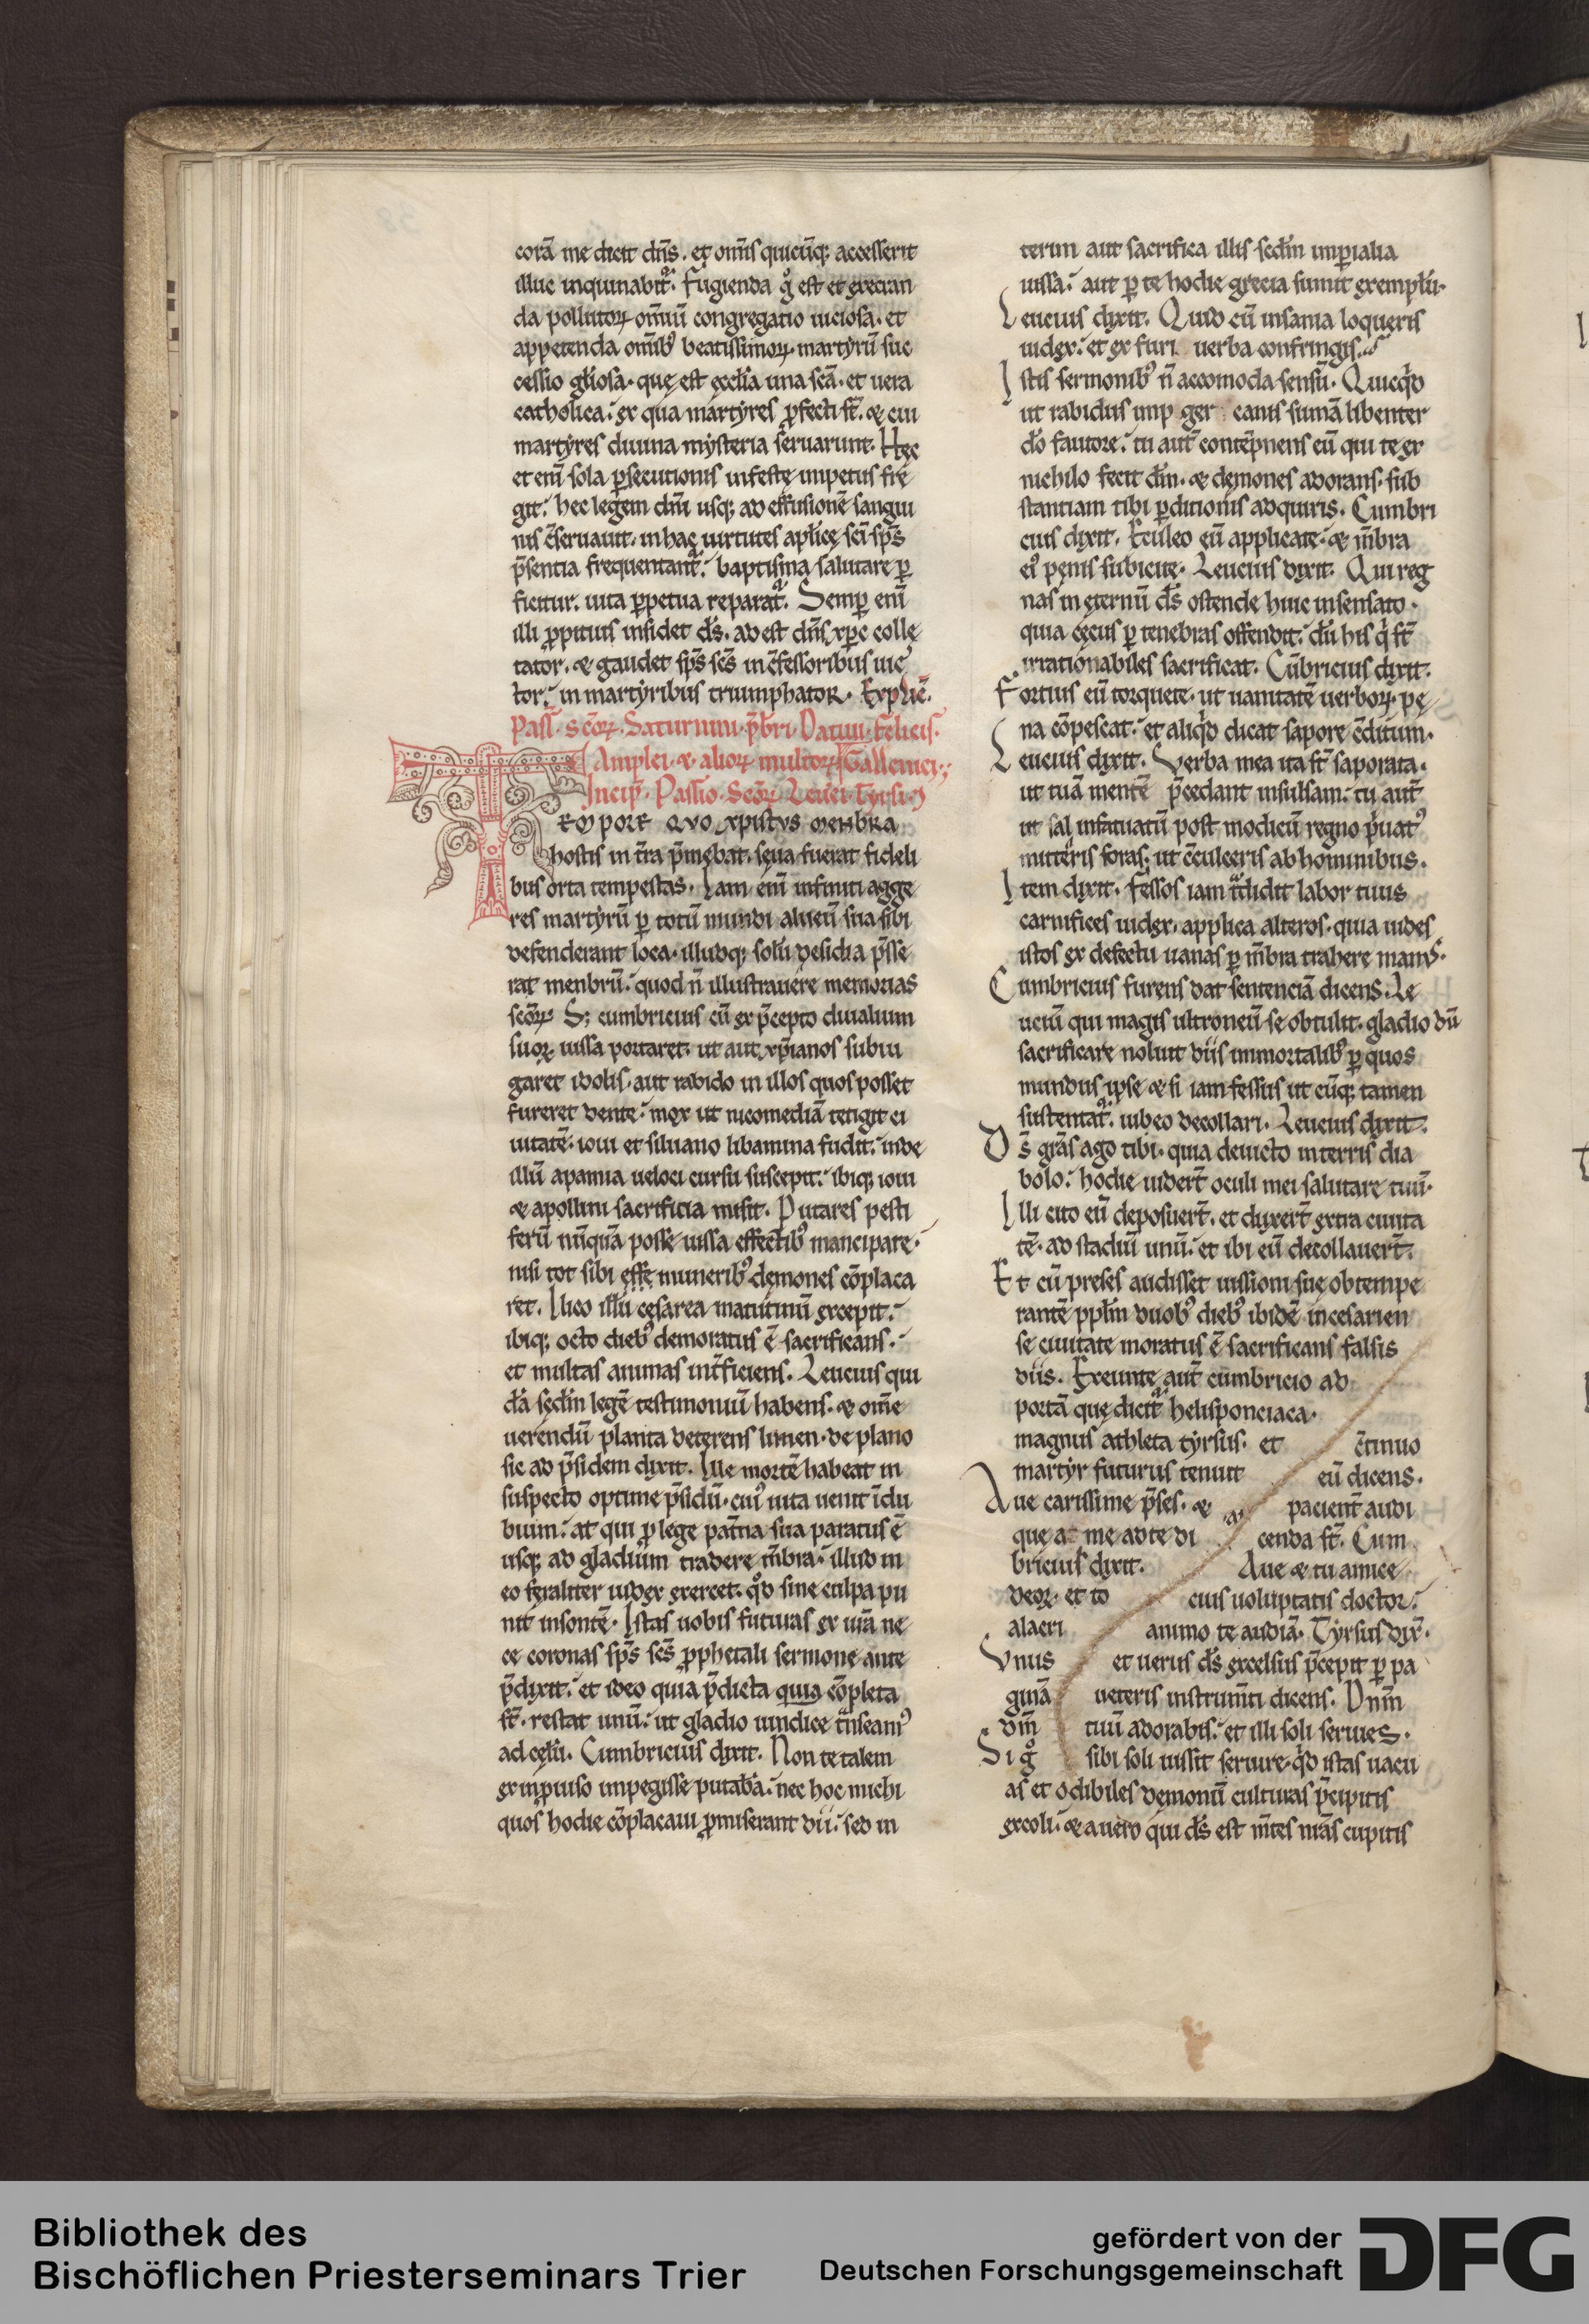 corā me dicit dn̄s. et om̄s quicūq; accesserit
illuc inquinabit᷑. Fugienda gͦ est et execran
da pollutoꝝ omniū congregatio uiciosa. et
appetenda omīb᷒ beatissimoꝝ martyrū suc
cessio gl̄iosa. quę est ęccl̄ia una scā. et uera
catholica. ex qua martyres ꝓfecti st̄. & cui
martyres diuina mysteria seruarunt. Hęc
et enī sola ꝑsecutionis infestę impetus fre
git. hec legem dn̄i usq; ad effusionē sangui
nis c̄seruauit. in hac uirtutes apl̄icę sc̄i sp̄s
p̄sentia frequentant᷑. baptisma salutare ꝑ
ficitur. uita ꝑpetua reparat᷑. Semꝑ enī
illi ꝓpitius insidet ds̄. adest dn̄s xp̄c colle
tator. & gaudet sp̄s sc̄s in c̄fessoribus uic
tor. in martyribus triumphator. Explic̄.
Pass̄. sc̄oꝝ. Saturnini. p̄bri. Datiui. felicis.
Amplei. &. alioꝝ multoꝝ Gallenici.
Incip̄. Passio. Sc̄oꝝ Leuci. Tyrsi.
TEMPORE QVO XPISTVS MENBRA
hostis in t̄ra p̄mebat. seua fuerat fideli
bus orta tempestas. Iam enī infiniti agge
res martyrū ꝑ totū mundi alueū sua sibi
defenderant loca. illudq; solū desidia p̄sse
rat menbrū. quod n̄ illustrauere memorias
sc̄oꝝ. S; cumbricius cū ex p̄cepto diualium
suoꝝ iussa portaret. ut aut xp̄ianos subiu
garet idolis. aut rabido in illos quos posset
fureret dente. mox ut nicomediā tetigit ci
uitatē. ioui et siluano libamina fudit. inde
illū apamia ueloci cursu suscepit. ibiq; ioui
& apollini sacrificia misit. Putares pesti
ferū nūquā posse iussa effectib᷒ mancipare.
nisi tot sibi esse munerib᷒ demones cōplaca
ret. Ilico illū cesarea matutinū excepit.
ibiq; octo dieb᷒ demoratus ē sacrificans.
et multas animas int̄ficiens. Leucius qui
dā sedm̄ legē testimoniū habens. & omē
uerendū planta deterens limen. de plano
sic ad p̄sidem dixit. Ille mortē habeat in
suspecto optime p̄sidū. cui᷒ uita uenit ī du
bium. at qui ꝓ lege pat̄na sua paratus ē
usq; ad gladium tradere m̄bra. illud in
eo feraliter iudex exercet. qͦd sine culpa pu
nit insontē. Istas uobis futuras ex uīa ne
ce coronas sp̄s sc̄s ꝓphetali sermone ante
p̄dixit. et ideo quia p̄dicta quia cōpleta
st̄. restat unū. ut gladio uindice t̄nseam᷒
ad cęlū. Cumbricius dixit. Non te talem
ex inꝓuiso impegisse putabā. nec hoc michi
quos hodie cōplacaui ꝓmiserant dii. sed in
terim aut sacrifica illis secdm̄ imꝑialia
iussa. aut ꝑ te hodie grecia sumit exemplū.
Leucius dixit. Quid cū insania loqueris
iudex. et ex furi uerba confringis.
Istis sermonib᷒ n̄ accomoda sensū. Quicqͥd
ut rabidus imp ger canis sumā libenter
dō fautore. tu aut̄ contēpnens eū qui te ex
nichilo fecit dm̄. & demones adorans. sub
stantiam tibi ꝑditionis adquiris. Cumbri
cius dixit. Eculeo eū applicate. & m̄bra
ei᷒ penis subicite. Leucius dixit. Qui reg
nas in eternū ds̄ ostende huic insensato.
quia cęcus ꝑ tenebras offendit. dū his qͥ st̄
irrationabiles sacrificat. Cūbricius dixit.
Fortius eū torquete. ut uanitatē uerboꝝ pę
na cōpescat. et aliqͥd dicat sapore c̄ditum.
Leucius dixit. Verba mea ita st̄ saporata.
ut tuā mentē p̄cedant insulsam. tu aut̄
ut sal infatuatū post modicū regno p̄uat᷒
mitteris foras. ut c̄culceris ab hominibus.
Item dixit. Fessos iam t̄didit labor tuus
carnifices iudex. applica alteros. quia uides
istos ex defectu uanas ꝑ m̄bra trahere man᷒.
Cumbricius furens dat sentenciā dicens. Le
uciū qui magis ultroneū se obtulit. gladio dū
sacrificare noluit diis immortalib᷒ ꝑ quos
mundus ipse & si iam fessus ut cūq; tamen
sustentat᷑. iubeo decollari. Leucius dixit.
Ds̄ grās ago tibi. quia deuicto in terris dia
bolo. hodie uidert̄ oculi mei salutare tuū.
Illi cito eū deposuert̄. et duxert̄ extra ciuita
tē. ad stadiū unū. et ibi eū decollauert̄.
Et cū preses audisset iussioni suę obtempe
rantē ppl̄m duob᷒ dieb᷒ ibidē in cesarien
se ciuitate moratus ē sacrificans falsis
diis. Exeunte aut̄ cumbricio ad
portā quę dicit᷑ helisponciaca.
magnus athleta tyrsus. et c̄tinuo
martyr futurus tenuit eū dicens.
Aue carissime p̄ses. & pacient̄ audi
que a me ad te di cenda st̄. Cum
bricius dixit. Aue & tu amice
deoꝝ. et to cius uoluptatis doctor.
alacri animo te audiā. Tyrsus dix̄.
Vnus et uerus ds̄ excelsus p̄cepit ꝑ pa
ginā ueteris instrumti dicens. Dnm̄
dm̄ tuū adorabis. et illi soli seruies.
Si gͦ sibi soli iussit seruire. qͥd istas uacu
as et odibiles demonū culturas p̄cipitis
excoli. & a uero qui ds̄ est m̄tes nr̄as cupitis
Bibliothek des
Bischöflichen Priesterseminars Trier
gefördert von der
Deutschen Forschungsgemeinschaft
DFG